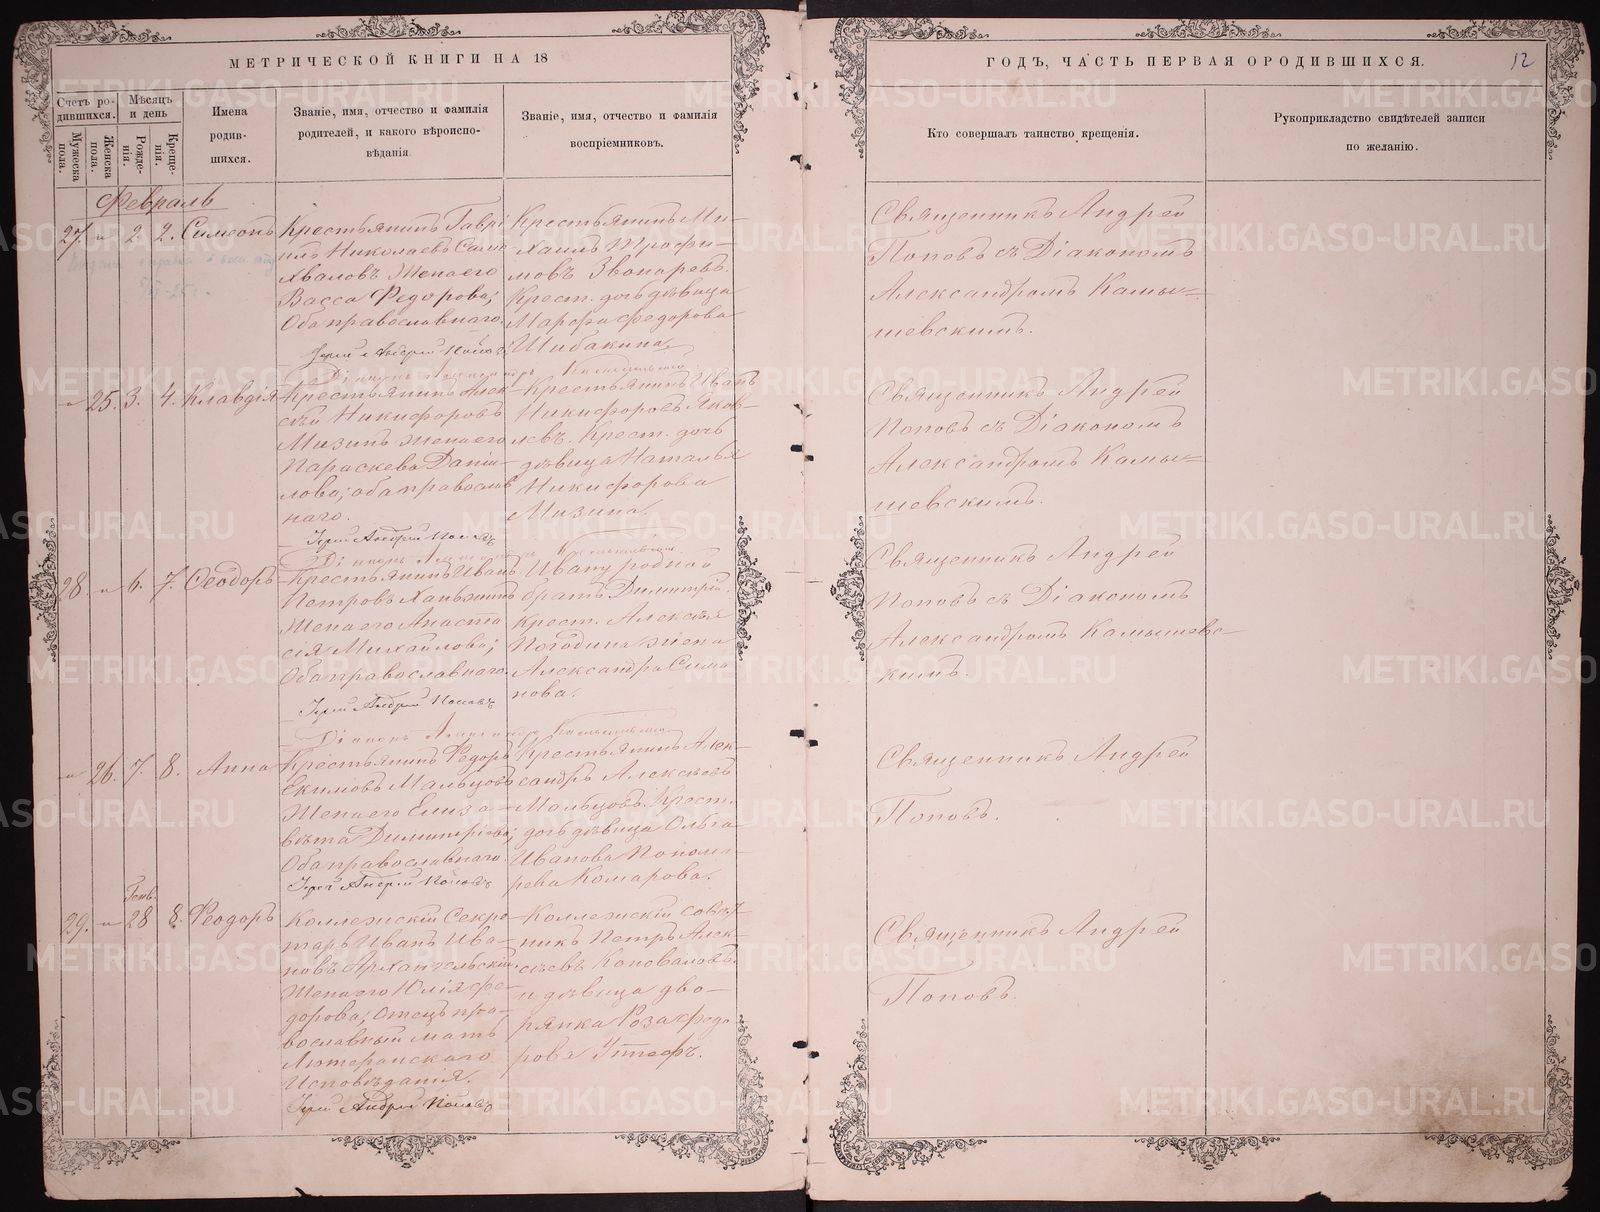 МЕТРИЧЕСКОЙ КНИГИ НА 18
ГОДЪ, ЧАСТЬ ПЕРВАЯ О РОДИВШИХСЯ.
12
Счетъ ро-
дившихся.
Мужеска
пола.
Женска
пола.
Мѣсяцъ
и день
Рожде-
нія.
Креще-
нія.
Имена
родив-
шихся.
Званіе, имя, отчество и фамилія
родителей, и какого вѣроиспо-
вѣданія
Званіе, имя, отчество и фамилія
воспріемниковъ.
Кто совершалъ таинство крещенія.
Рукоприкладство свидѣтелей записи
по желанію.
Февраль
27. „ 2. 2. Симеонъ
Крестьянинъ Гаврі
илъ Николаевъ Само
хваловъ Жена его
Васса Федорова;
Оба православнаго.
Іерей Андрей Поповъ
Крестьянинъ Ми-
хаилъ Трофи-
мовъ Звонаревъ.
Крест. дочь дѣвица
Марфа Федорова
Шибакина
Священникъ Андрей
Поповъ съ Діакономъ
Александромъ Камы=
шевскимъ.
„ 25. 3. 4. Клавдія
Крестьянинъ Алек
сѣй Никифоровъ
Мизинъ Жена его
Параскева Даніи-
лова; оба православ
наго.
Іерей Андрей Поповъ
Крестьянинъ Иванъ
Никифоровъ Яков-
левъ. Крест. дочь
дѣвица Наталья
Никифорова
Мизина.
Священникъ Андрей
Поповъ съ Діакономъ
Александромъ Камы=
шевскимъ.
28. „ 6. 7. Ѳеодоръ
Крестьянинъ Иванъ
Петровъ
Жена его Анаста
сія Михайлова;
Оба православнаго.
Іерей Андрей Поповъ
Ивану родной
братъ Димитрій.
крест. Алексѣя
Погодина жена
Александра Симо
нова.
Священникъ Андрей
Поповъ съ Діакономъ
Александромъ Камышевс-
кимъ.
„ 26. 7. 8. Анна
Крестьянинъ Федоръ
Екимовъ Мальцовъ
Жена его Елиза-
вѣта Димитріева;
Оба православнаго.
Іерей Андрей Поповъ
Крестьянинъ Алек-
сандръ Алексѣевъ
Мальцовъ. Крест.
дочь дѣвица Ольга
Иванова Пономо-
рева Комарова.
Священникъ Андрей
Поповъ.
Генв.
29. „ 28 8. Феодоръ
Коллежскій Секре
тарь Иванъ Ива-
новъ Архангельскій
Жена его Юлія Фе-
дорова; отецъ пра-
вославный мать
Лютеранскаго
Исповѣданія.
Іерей Андрей Поповъ
Коллежскій совѣт
никъ Петръ Алек-
сѣевъ Коноваловъ.
и дѣвица дво-
рянка Роза Федо
рова
Священникъ Андрей
Поповъ.
METRIKI.GASO-URAL.RU